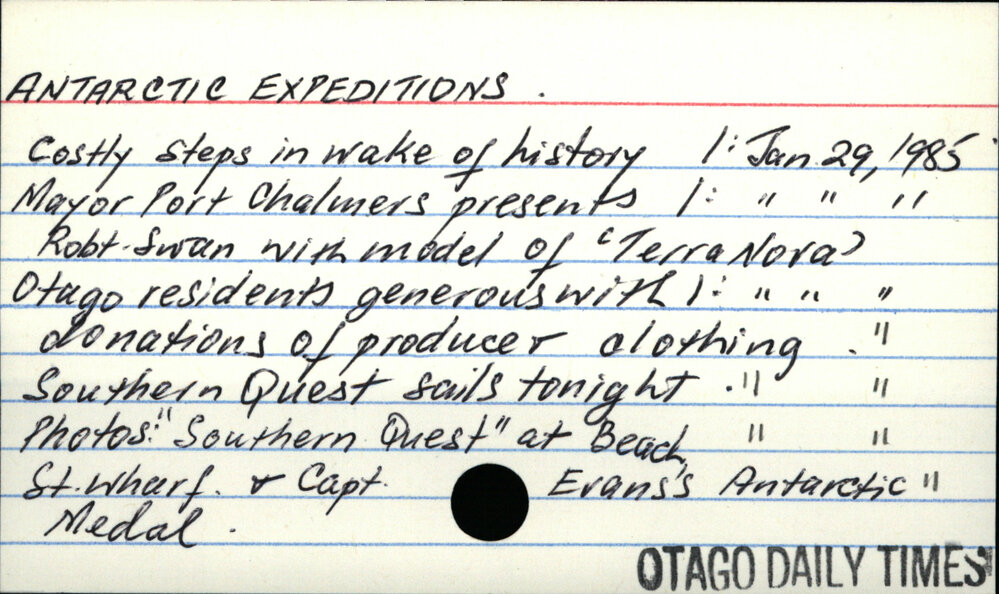 ANTARCTIC EXPEDITIONS .
Costly steps in wake of history 1: Jan 29, 1985
Mayor Port Chalmers presents 1: " " "
Robt. Swan with model of 'Terra Nova'
Otago residents generous with 1: " " "
donations of produce & clothing . "
Southern Quest sails tonight . " "
Photos: "Southern Quest" at Beach " "
St. Wharf. & Capt. Evans's Antarctic "
Medal .
OTAGO DAILY TIMES